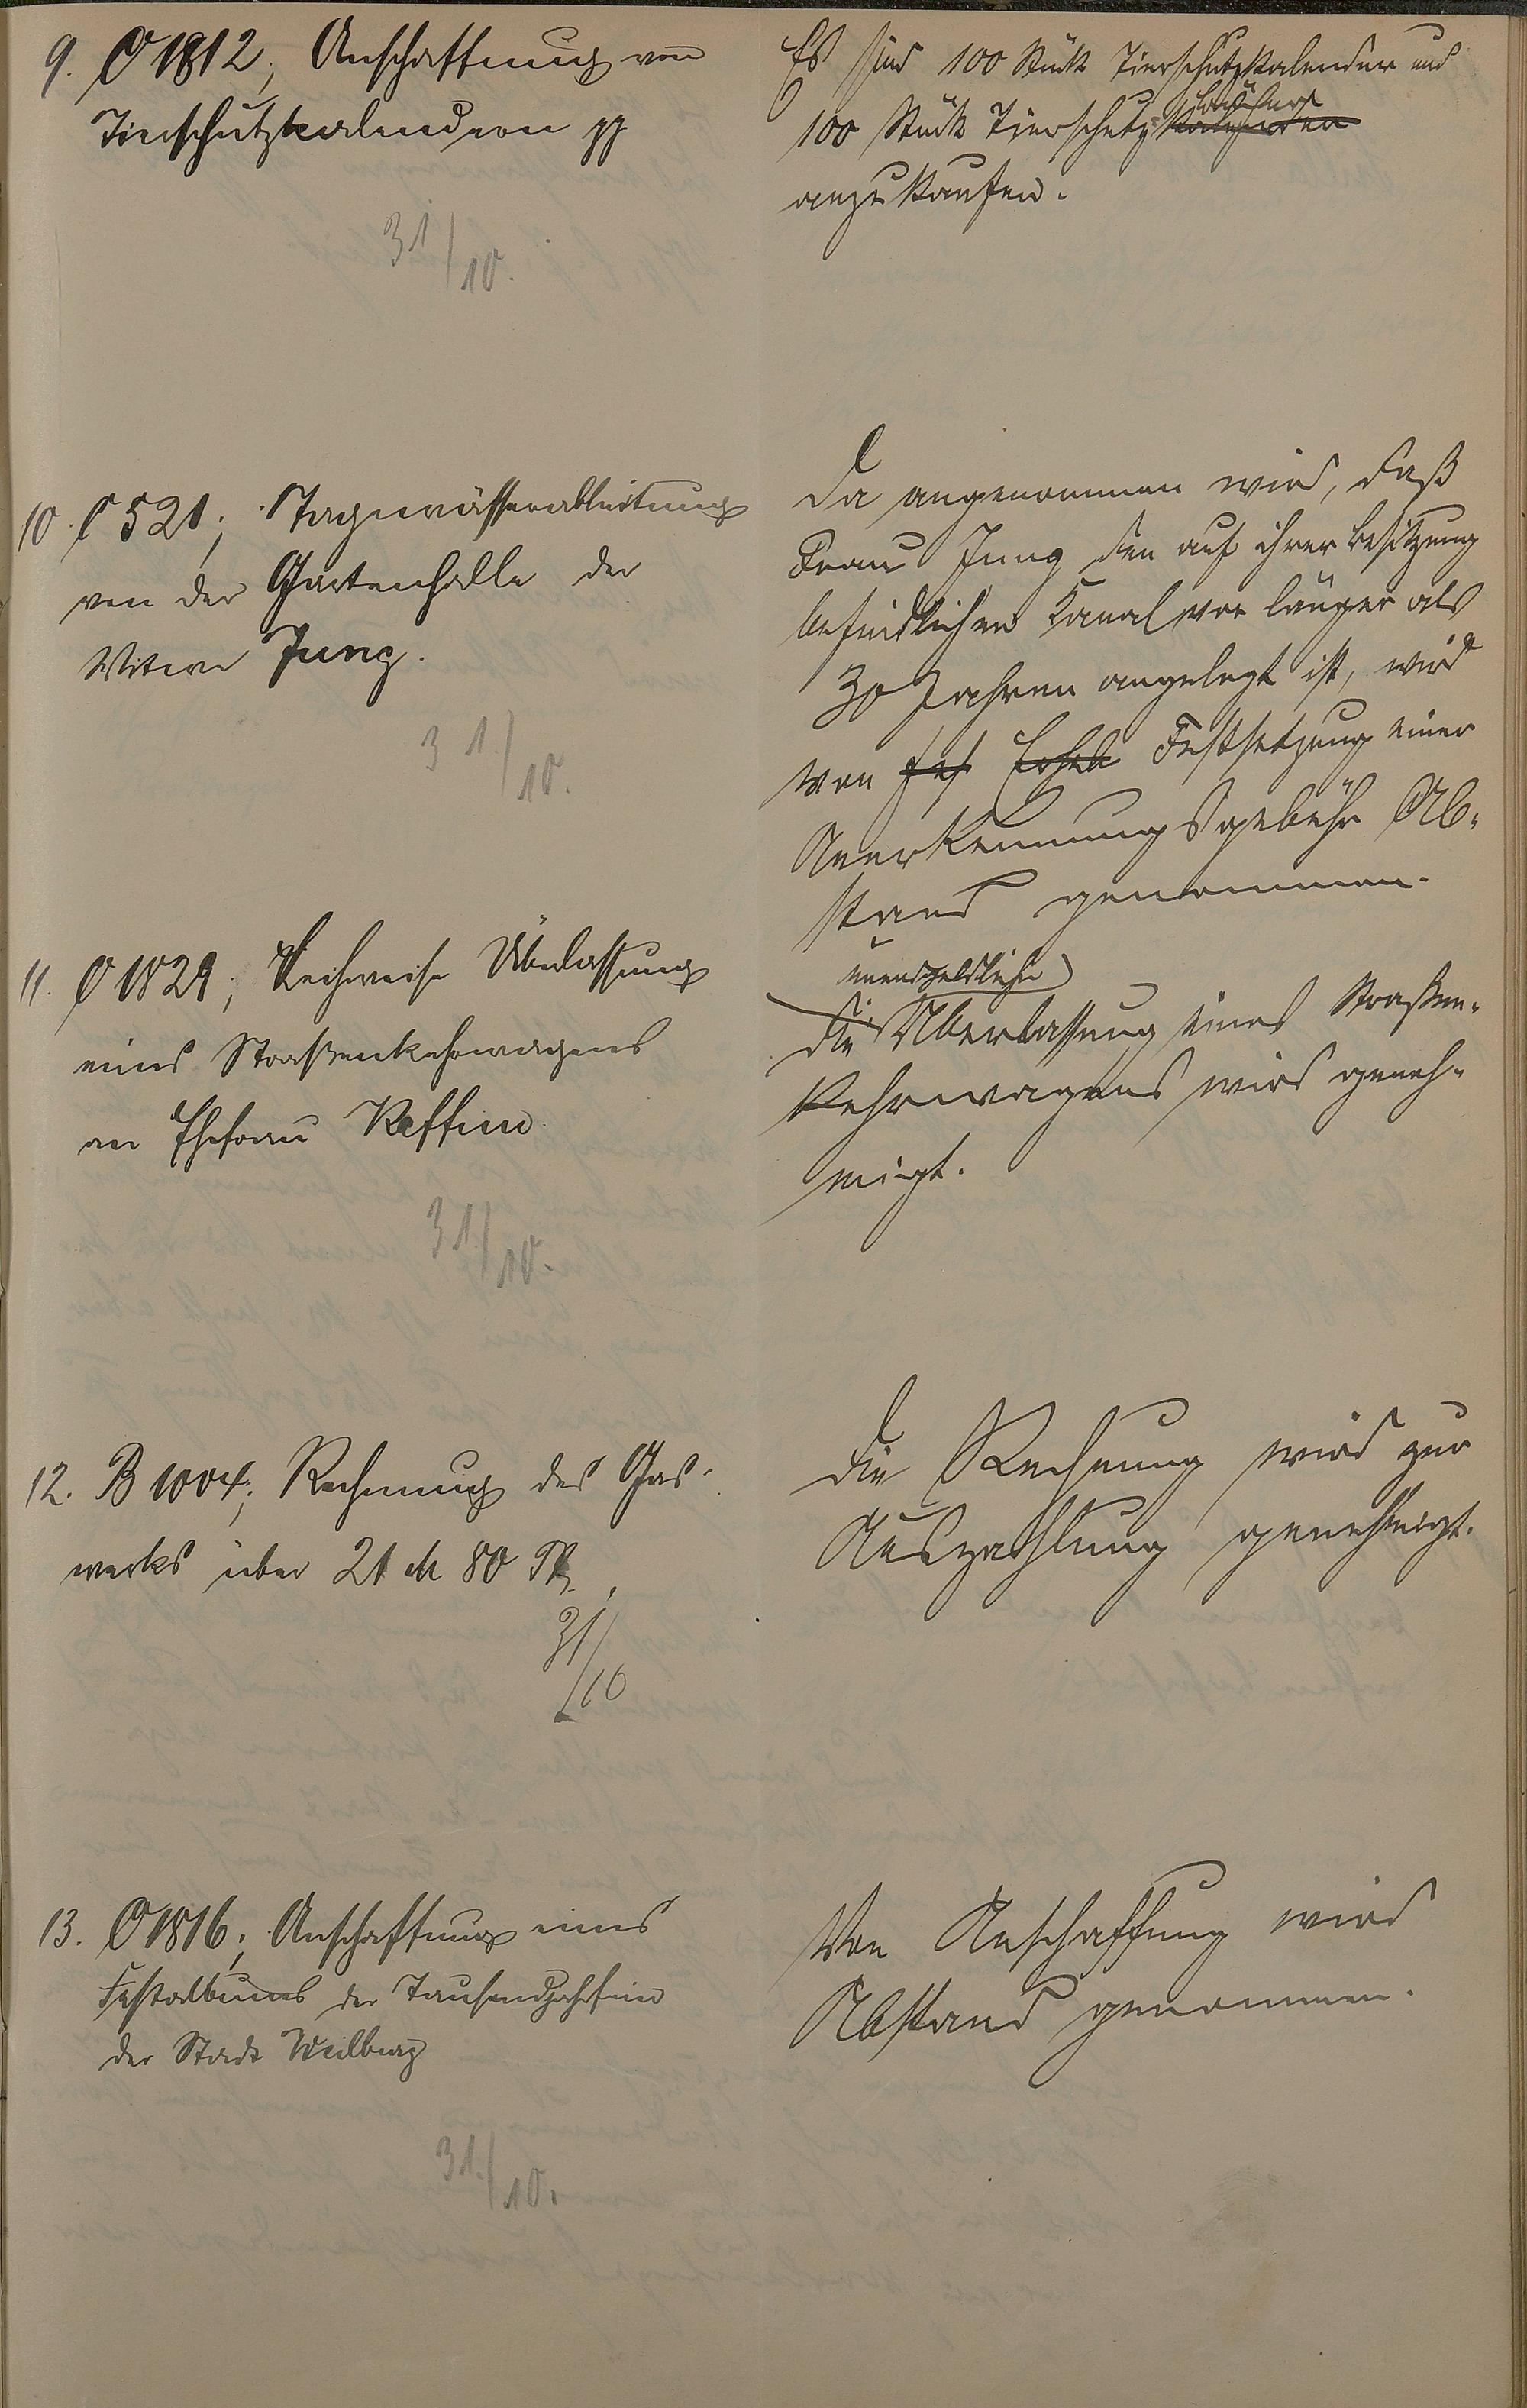 9. O 1812; Anschaffung von
Tierschutzkalendern pp
31/10.
Es sind 100 Stück Tierschutzkalender und
100 Stück Tierschutz-Kalender
anzukaufen.
10. C 521; Tagwässerableitung
von der Gartenhalle der
Witwe Jung.
31/10.
Da angenommen wird, daß
Frau Jung den auf ihrer Besitzung
befindlichen Kanal vor länger als
30 Jahren angelegt ist, wird
von Fes Erheb Festsetzung einer
Anerkennungsgebühr Ab-
stand genommen.
11. O 1829; Leihweise Überlassung
eines Straßenkehrwagens
an Ehefrau Keffine
31/10.
unentgeltliche
Die Überlassung eines Straßen-
kehrwagens wird geneh-
migt.
12. B 1004; Rechnung des Gas-
werks über 21 M 80 Pf.
31/10
Die Rechnung wird zur
Auszahlung genehmigt.
13. O 1816; Anschaffung eines
Festalbums der Tausendjahrfeier
der Stadt Weilburg
31./10.
Von Anschaffung wird
Abstand genommen.